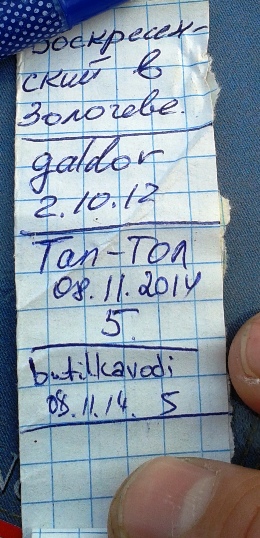 Воскресен-
ский в
Золочеве.
galdor
2.10.12
Тап-Топ
08.11.2014
5.
butilkavodi
08.11.14. 5